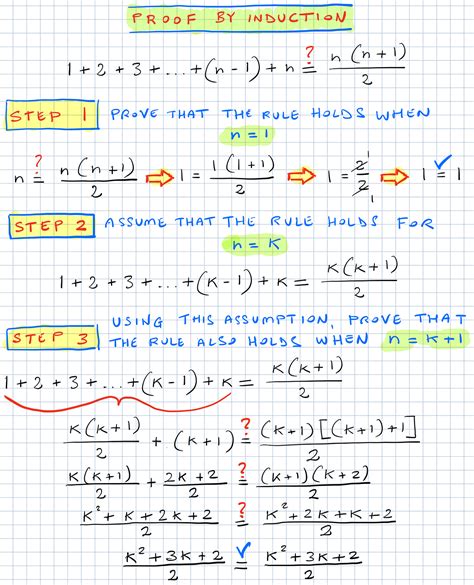 PROOF BY INDUCTION
1 + 2 + 3 + ... + (n - 1) + n ≟ n(n+1)/2
STEP 1 PROVE THAT THE RULE HOLDS WHEN
n = 1
n ≟ n(n+1)/2 ⇨ 1 = 1(1+1)/2 ⇨ 1 = 2̸¹/2̸₁ ⇨ 1 =✓ 1
STEP 2 ASSUME THAT THE RULE HOLDS FOR
n = K
1 + 2 + 3 + ... + (K - 1) + K = K(K+1)/2
USING THIS ASSUMPTION, PROVE THAT
STEP 3 THE RULE ALSO HOLDS WHEN n = K+1
1 + 2 + 3 + ... + (K - 1) + K = K(K+1)/2
K(K+1)/2 + (K+1) ≟ (K+1)[(K+1)+1]/2
K(K+1)/2 + 2K+2/2 ≟ (K+1)(K+2)/2
K²+K+2K+2/2 ≟ K²+2K+K+2/2
K²+3K+2/2 =✓ K²+3K+2/2